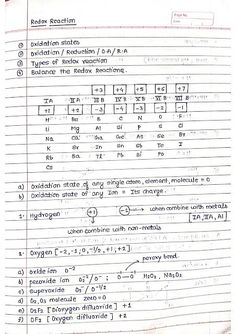 Redox Reaction
Page No.
① Oxidation states
② Oxidation / Reduction / O.A / R.A
③ Types of Redox reaction
④ Balance the Redox Reaction
+3 +4 +5 +6 +7
IA IIA III B IV B V B VI B VII B
+1 +2 -4 -3 -2 -1
H Be B C N O F
Li Mg Al Si P S Cl
Na Ca Ga Ge As Se Br
K Sr In Sn Sb Te I
Rb Ba Tl Pb Bi Po
Cs
a) Oxidation state of any single atom, element, molecule = 0
b) Oxidation state of any Ion = Its charge.
1. Hydrogen +1 when combine with non-metals
-1 [IA, IIA, Al]
when combine with non-metals
2. Oxygen [-2, -1, 0, -1/2, +1, +2]
peroxy bond.
a) oxide ion O⁻²
b) peroxide ion O₂⁻² H₂O₂, Na₂O₂
c) Superoxide O₂⁻
d) O₂, O₃ molecule zero = 0
e) O₂F₂ [Dioxygen difluoride] +1
f) OF₂ [Oxygen difluoride] +2